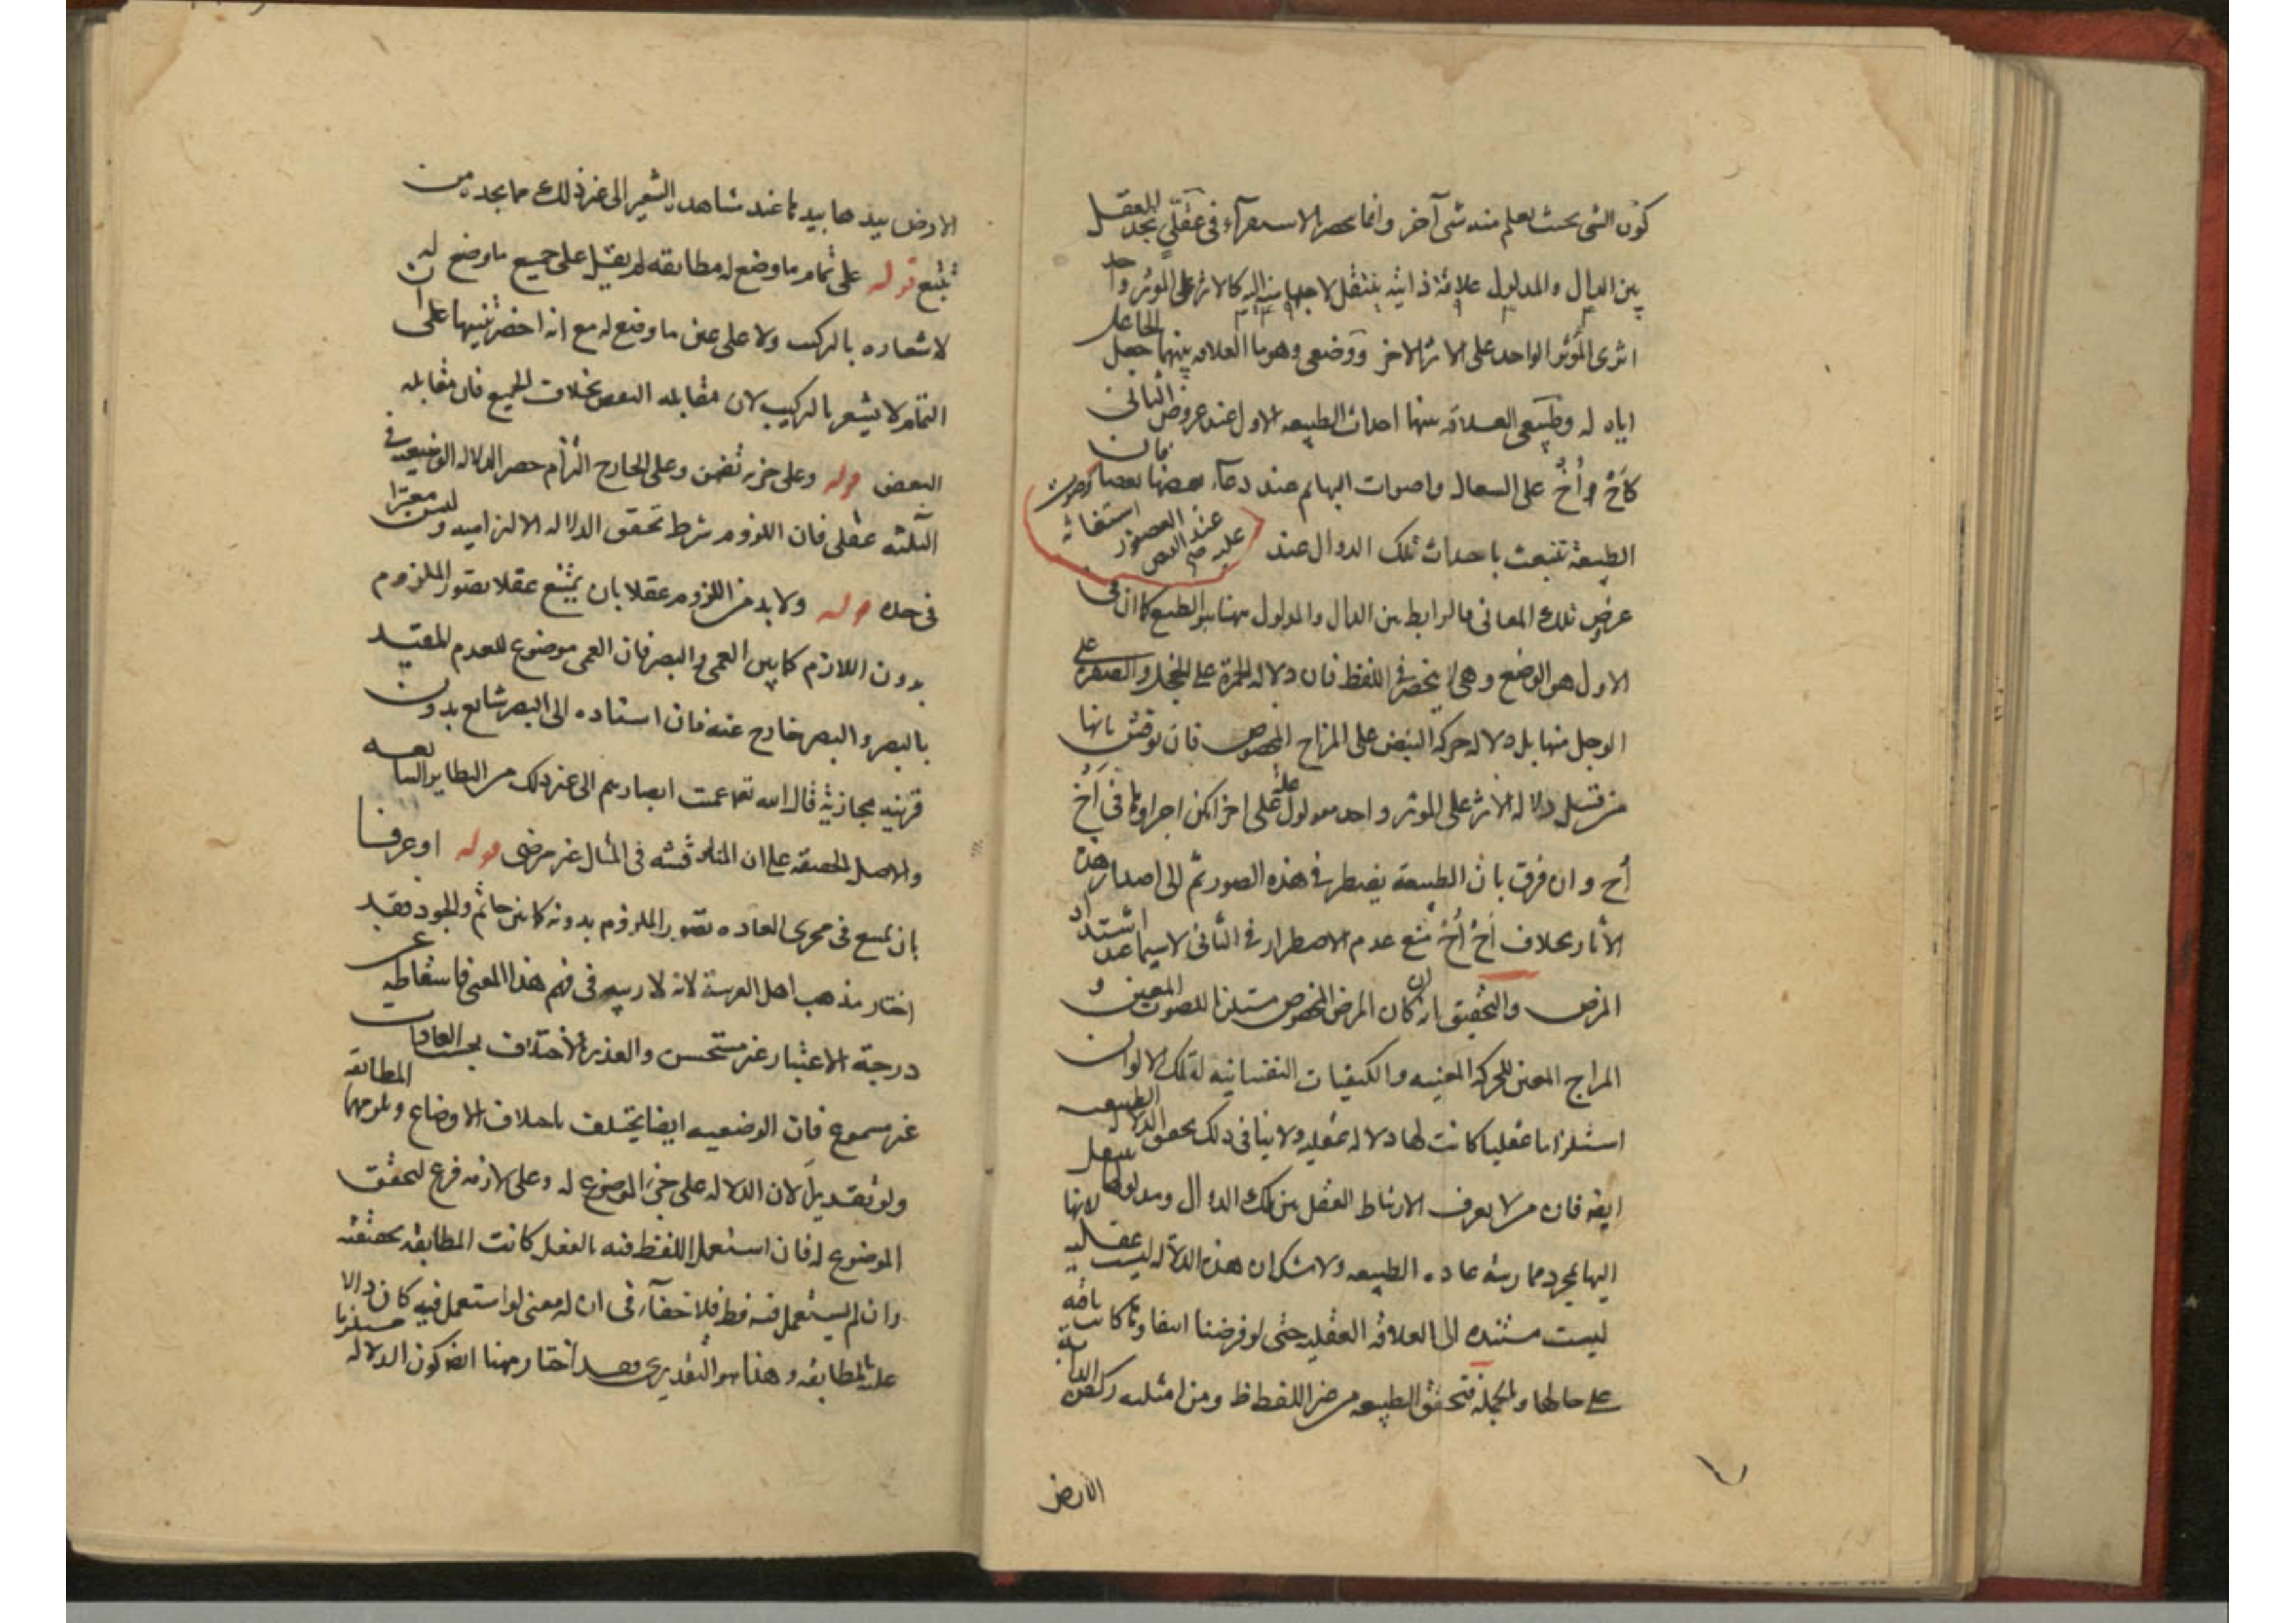 كون الشئ بحيث يعلم منه شئ آخر وانما يحصر الاستقرآء فى عقلي يجد العقل
بين الدال والمدلول علاقة ذاتية ينتقل لاجلها منه اليه كالاثر على المؤثر واحد
اثرى المؤثر الواحد على الاثر الاخر ووضعى وهو ما العلاقه بينهما جعل الجاعل
اياه له وطبيعى العلاقه بينهما احداث الطبيعه الاول عند عروض الثانى
كاَخ واُخ على السعال واصوات البهائم عند دعآء بعضها بعضا فان
وصوت استغاثة العصفور عند القبض عليه صح
الطبيعة تنبعث باحداث تلك الدوال عند
عروض تلك المعانى فالرابط بين الدال والمدلول ههنا هو الطبع كما ان فى
الاول هو الوضع وهى لا ينحصر فى اللفظ فان دلاله الحمرة على الخجل والصفرة على
الوجل منها بل دلاله حركه النبض على المزاج المخصوص فان نوقش بانها
من قبيل دلاله الاثر على المؤثر واحد معلول علة على اخر امكن اجراؤها فى اَخ
اُح وان فرق بان الطبيعة يضطر فى هذه الصور ثم الى اصدار هذه
الآثار بخلاف اَخ اُخ منع عدم الاضطرار فى الثانى لاسيما عند اشتداد
المرض والتحقيق انه ان كان المرض المخصوص مستلزما للصوت المعين و
المزاج المعين للحركة المعينه والكيفيات النفسانيه لتلك الالوان
استلزاما عقليا كانت لها دلاله عقليه ولا ينافى ذلك تحقق الدلالة الطبيعيه
ايضه فان من لا يعرف الارتباط العقلى بين تلك الدوال ومدلولها ينتقل
اليها بمجرد ممارسة عاده الطبيعه ولا شك ان هذه الدلاله ليست عقليه لانها
ليست مستنده الى العلاقه العقليه حتى لو فرضنا انتفاوها كانت باقيه
على حالها وبالجملة فتحقق الطبيعه من غير اللفظ ظ ومن امثلته ركض الدابة
الارض
الارض بيدها بيدها عند مشاهده الشعير الى غير ذلك مما يجده من
تتبع قوله على تمام ما وضع له مطابقه لم يقل على جميع ما وضع له
لاشعاره بالتركيب ولا على عين ما وضع له مع انه اخصر تنبيها على ان
التمام لا يشعر بالتركيب لان مقابله النقص بخلاف الجميع فان مقابله
البعض قوله وعلى جزئه تضمن وعلى الخارج التزام حصر الدلاله الوضعيه فى
الثلثه عقلى فان اللزوم شرط تحقق الدلاله الالتزاميه وليس معتبرا
فى حده قوله ولا بد من اللزوم عقلا بان يمتنع عقلا تصور الملزوم
بدون اللازم كما بين العمى والبصر فان العمى موضوع للعدم المقيد
بالبصر والبصر خارج عنه فان اسناده الى البصر شايع بدون
قرينه مجازية قال الله تعا عميت ابصارهم الى غير ذلك من النظاير الشايعه
والاصل الحقيقه على ان المناقشه فى المثال غير مرضى قوله او عرفا
بان يمتنع فى مجرى العاده تصور الملزوم بدونه كما بين حاتم والجود وقد
اختار مذهب اهل العربية لانه لا ريب فى فهم هذا المعنى فاسقاطه عن
درجة الاعتبار غير مستحسن والعذر بالاختلاف بحسب العادات
غير مسموع فان الوضعيه ايضا يختلف باختلاف الاوضاع ويلزمهما المطابقه
ولو تقديرا لان الدلاله على جزء الموضوع له وعلى لازمه فرع لتحقق
الموضوع له فان استعمل اللفظ فيه بالفعل كانت المطابقة محققة
وان لم يستعمل فيه قط فلا خفآء فى ان له معنى لو استعمل فيه كان دالا
عليه بالمطابقه وهذا هو التقديرى وقد اختار ههنا ايضه كون الدلاله مستلزما